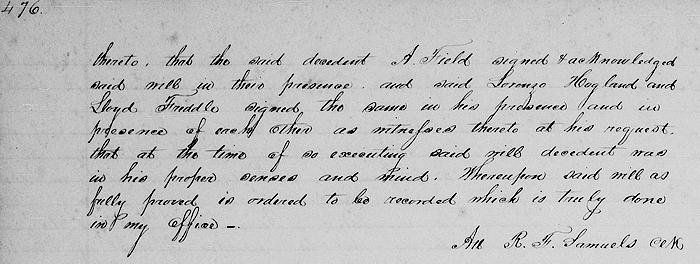 476.
thereto. that the said decedent A. Field signed & acknowledged
said will in their presence. and said Lorenzo Hogland and
Lloyd Friddle signed the same in his presence and in
presence of each other as witnesses thereto at his request.
that at the time of so executing said will decedent was
in his proper senses and mind. Whereupon said will as
fully proved is ordered to be recorded which is truly done
in my office —.
Att R. F. Samuels Clk